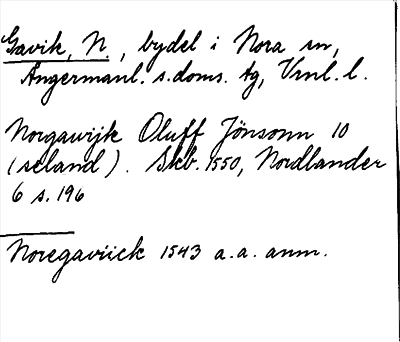 Gavik, N., bydel i Nora sn,
Ångermanl. s. doms. tg, Vrnl. l.
Norgawijk Oluff Jönsonn 10
(seland). Skb. 1550, Nordlander
6 s. 196
Noregaviick 1543 a.a. anm.